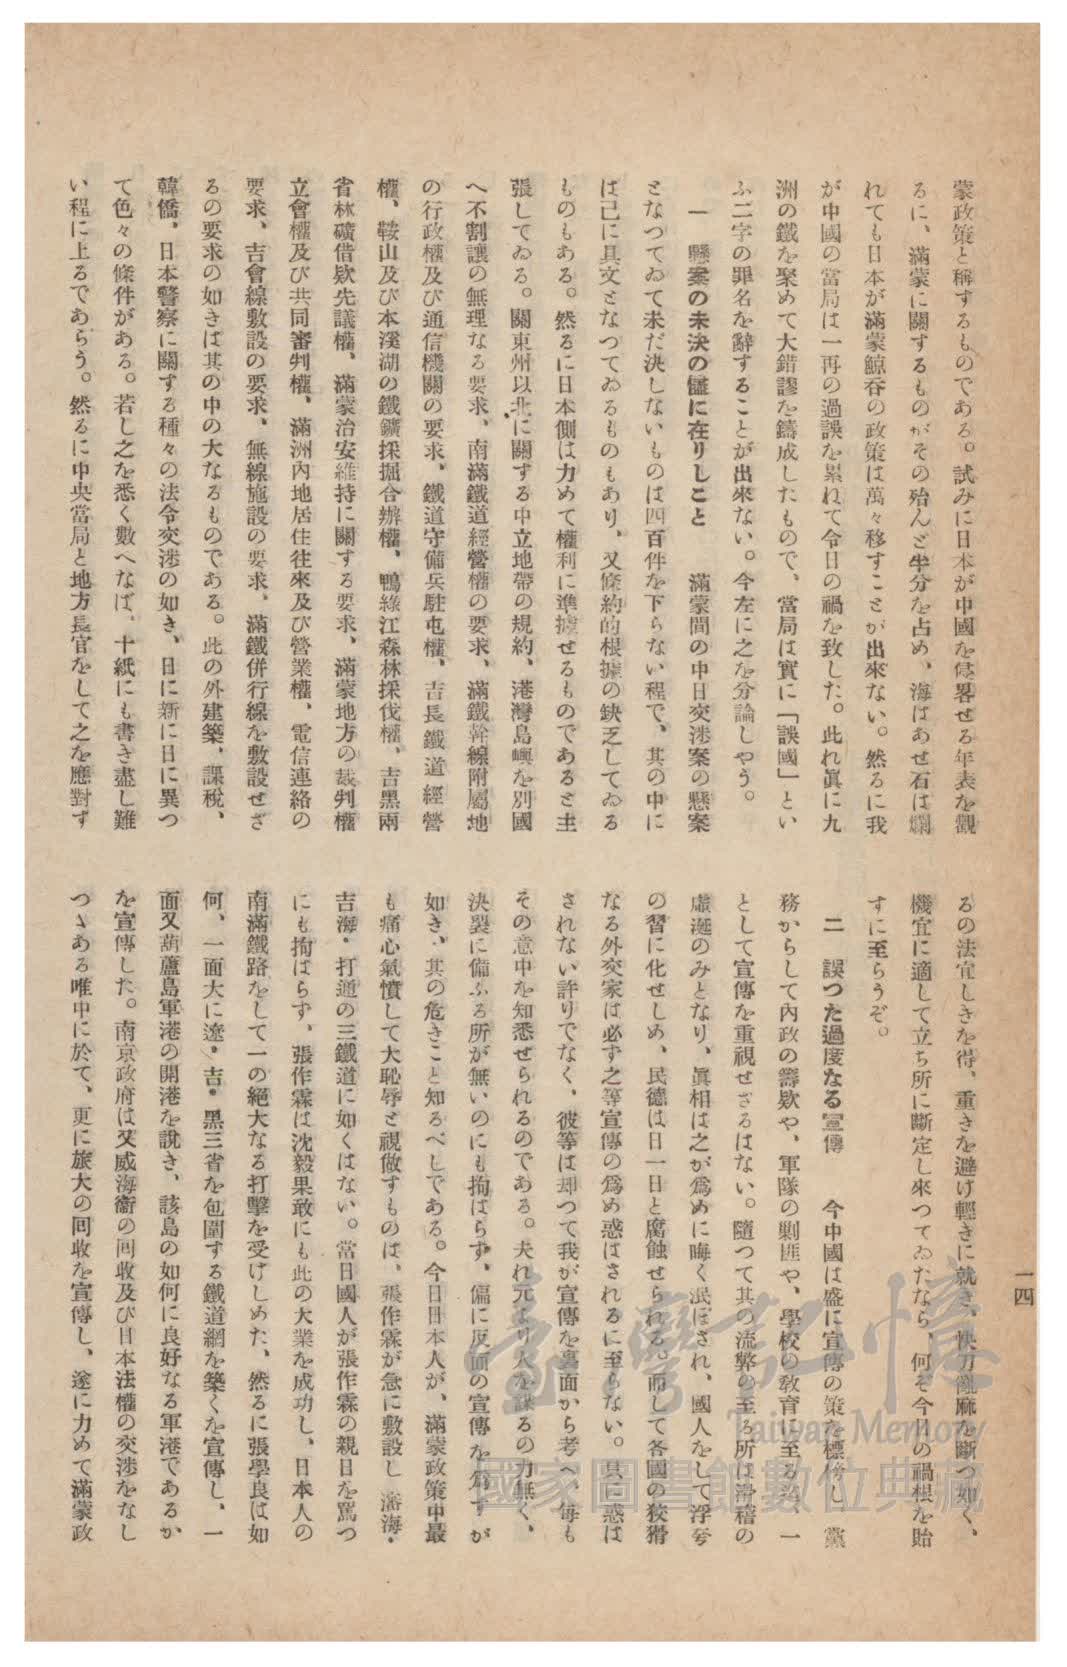 蒙政策と稱するものである。試みに日本が中國を侵畧せる年表を觀
るに、滿蒙に關するものがその殆んど半分を占め、海はあせ石は爛
れても日本が滿蒙鯨呑の政策は萬々移すことが出來ない。然るに我
が中國の當局は一再の過誤を累ねて今日の禍を致した。此れ眞に九
洲の鐵を聚めて大錯謬を鑄成したもので、當局は實に「誤國」とい
ふ二字の罪名を辭することが出來ない。今左に之を分論しやう。
一 懸案の未決の儘に在りしこと 滿蒙間の中日交渉案の懸案
となつてゐて未だ決しないものは四百件を下らない程で、其の中に
は己に具文となつてゐるものもあり、又條約的根據の缺乏してゐる
ものもある。然るに日本側は力めて權利に準據せるものであると主
張してゐる。關東州以北に關する中立地帶の規約、港灣島嶼を別國
へ不割讓の無理なる要求、南滿鐵道經營權の要求、滿鐵幹線附屬地
の行政權及び通信機關の要求、鐵道守備兵駐屯權、吉長鐵道經營
權、鞍山及び本溪湖の鐵鑛採掘合辦權、鴨綠江森林採伐權、吉黑兩
省林礦借欵先議權、滿蒙治安維持に關する要求、滿蒙地方の裁判權
立會權及び共同審判權、滿洲內地居住往來及び營業權、電信連絡の
要求、吉會線敷設の要求、無線施設の要求、滿鐵併行線を敷設せざ
るの要求の如きは其の中の大なるものである。此の外建築、課稅、
韓僑、日本警察に關する種々の法令交渉の如き、日に新に日に異つ
て色々の條件がある。若し之を悉く數へなば、十紙にも書き盡し難
い程に上るであらう。然るに中央當局と地方長官をして之を應對す
るの法宜しきを得、重きを避け輕きに就き、快刀亂麻を斷つ如く、
機宜に適して立ち所に斷定し來つてゐたなら、何ぞ今日の禍根を貽
すに至らうぞ。
二 誤つた過度なる宣傳 今中國は盛に宣傳の策を標榜し 黨
務からして內政の籌欵や、軍隊の剿匪や、學校の敎育に至る迄、一
として宣傳を重視せざるはない。隨つて其の流弊の至る所は滑稽の
虛誕のみとなり、眞相は之が爲めに晦く泯ぼされ、國人をして浮夸
の習に化せしめ、民德は日一日と腐蝕せられる。而して各國の狡猾
なる外交家は必ず之等宣傳の爲め惑はされるに至らない。具に惑は
されない許りでなく、彼等は却つて我が宣傳を裏面から考へ、每も
その意中を知悉せられるのである。夫れ元より人を謀るの力無く、
決裂に備ふる所が無いのにも拘はらず、偏に反面の宣傳を爲すが
如き、其の危きこと知るべしである。今日日本人が、滿蒙政策中最
も痛心氣憤して大恥辱と視做すものは、張作霖が急に敷設し 瀋海・
吉海・打通の三鐵道に如くはない。當日國人が張作霖の親日を罵つ
にも拘はらず、張作霖は沈毅果敢にも此の大業を成功し、日本人の
南滿鐵路をして一の絕大なる打擊を受けしめた、然るに張學良は如
何、一面大に遼・吉・黑三省を包圍する鐵道網を築くを宣傳し、一
面又葫蘆島軍港の開港を說き、該島の如何に良好なる軍港であるか
を宣傳した。南京政府は又威海衞の回收及び日本法權の交渉をなし
つゝある唯中に於て、更に旅大の回收を宣傳し、遂に力めて滿蒙政
一四
臺灣記憶
Taiwan Memory
國家圖書館數位典藏